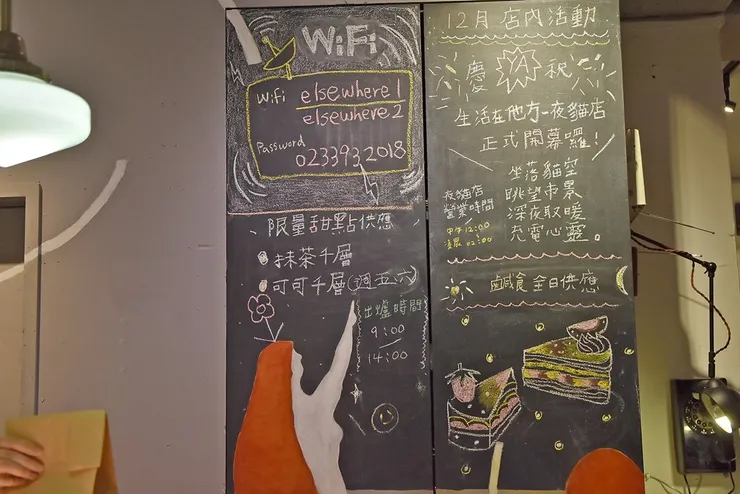 WiFi
WiFi elsewhere1
elsewhere2
Password
0233932018
限量甜點供應
抹茶千層
可可千層(週五、六)
出爐時間
9:00
14:00
12月 店內活動
慶 YA 祝
生活在他方-夜貓店
正式開幕囉!
夜貓店
營業時間
中午12:00
凌晨02:00
坐落貓空
眺望市景
深夜取暖
充電心靈。
鹹食 全日供應